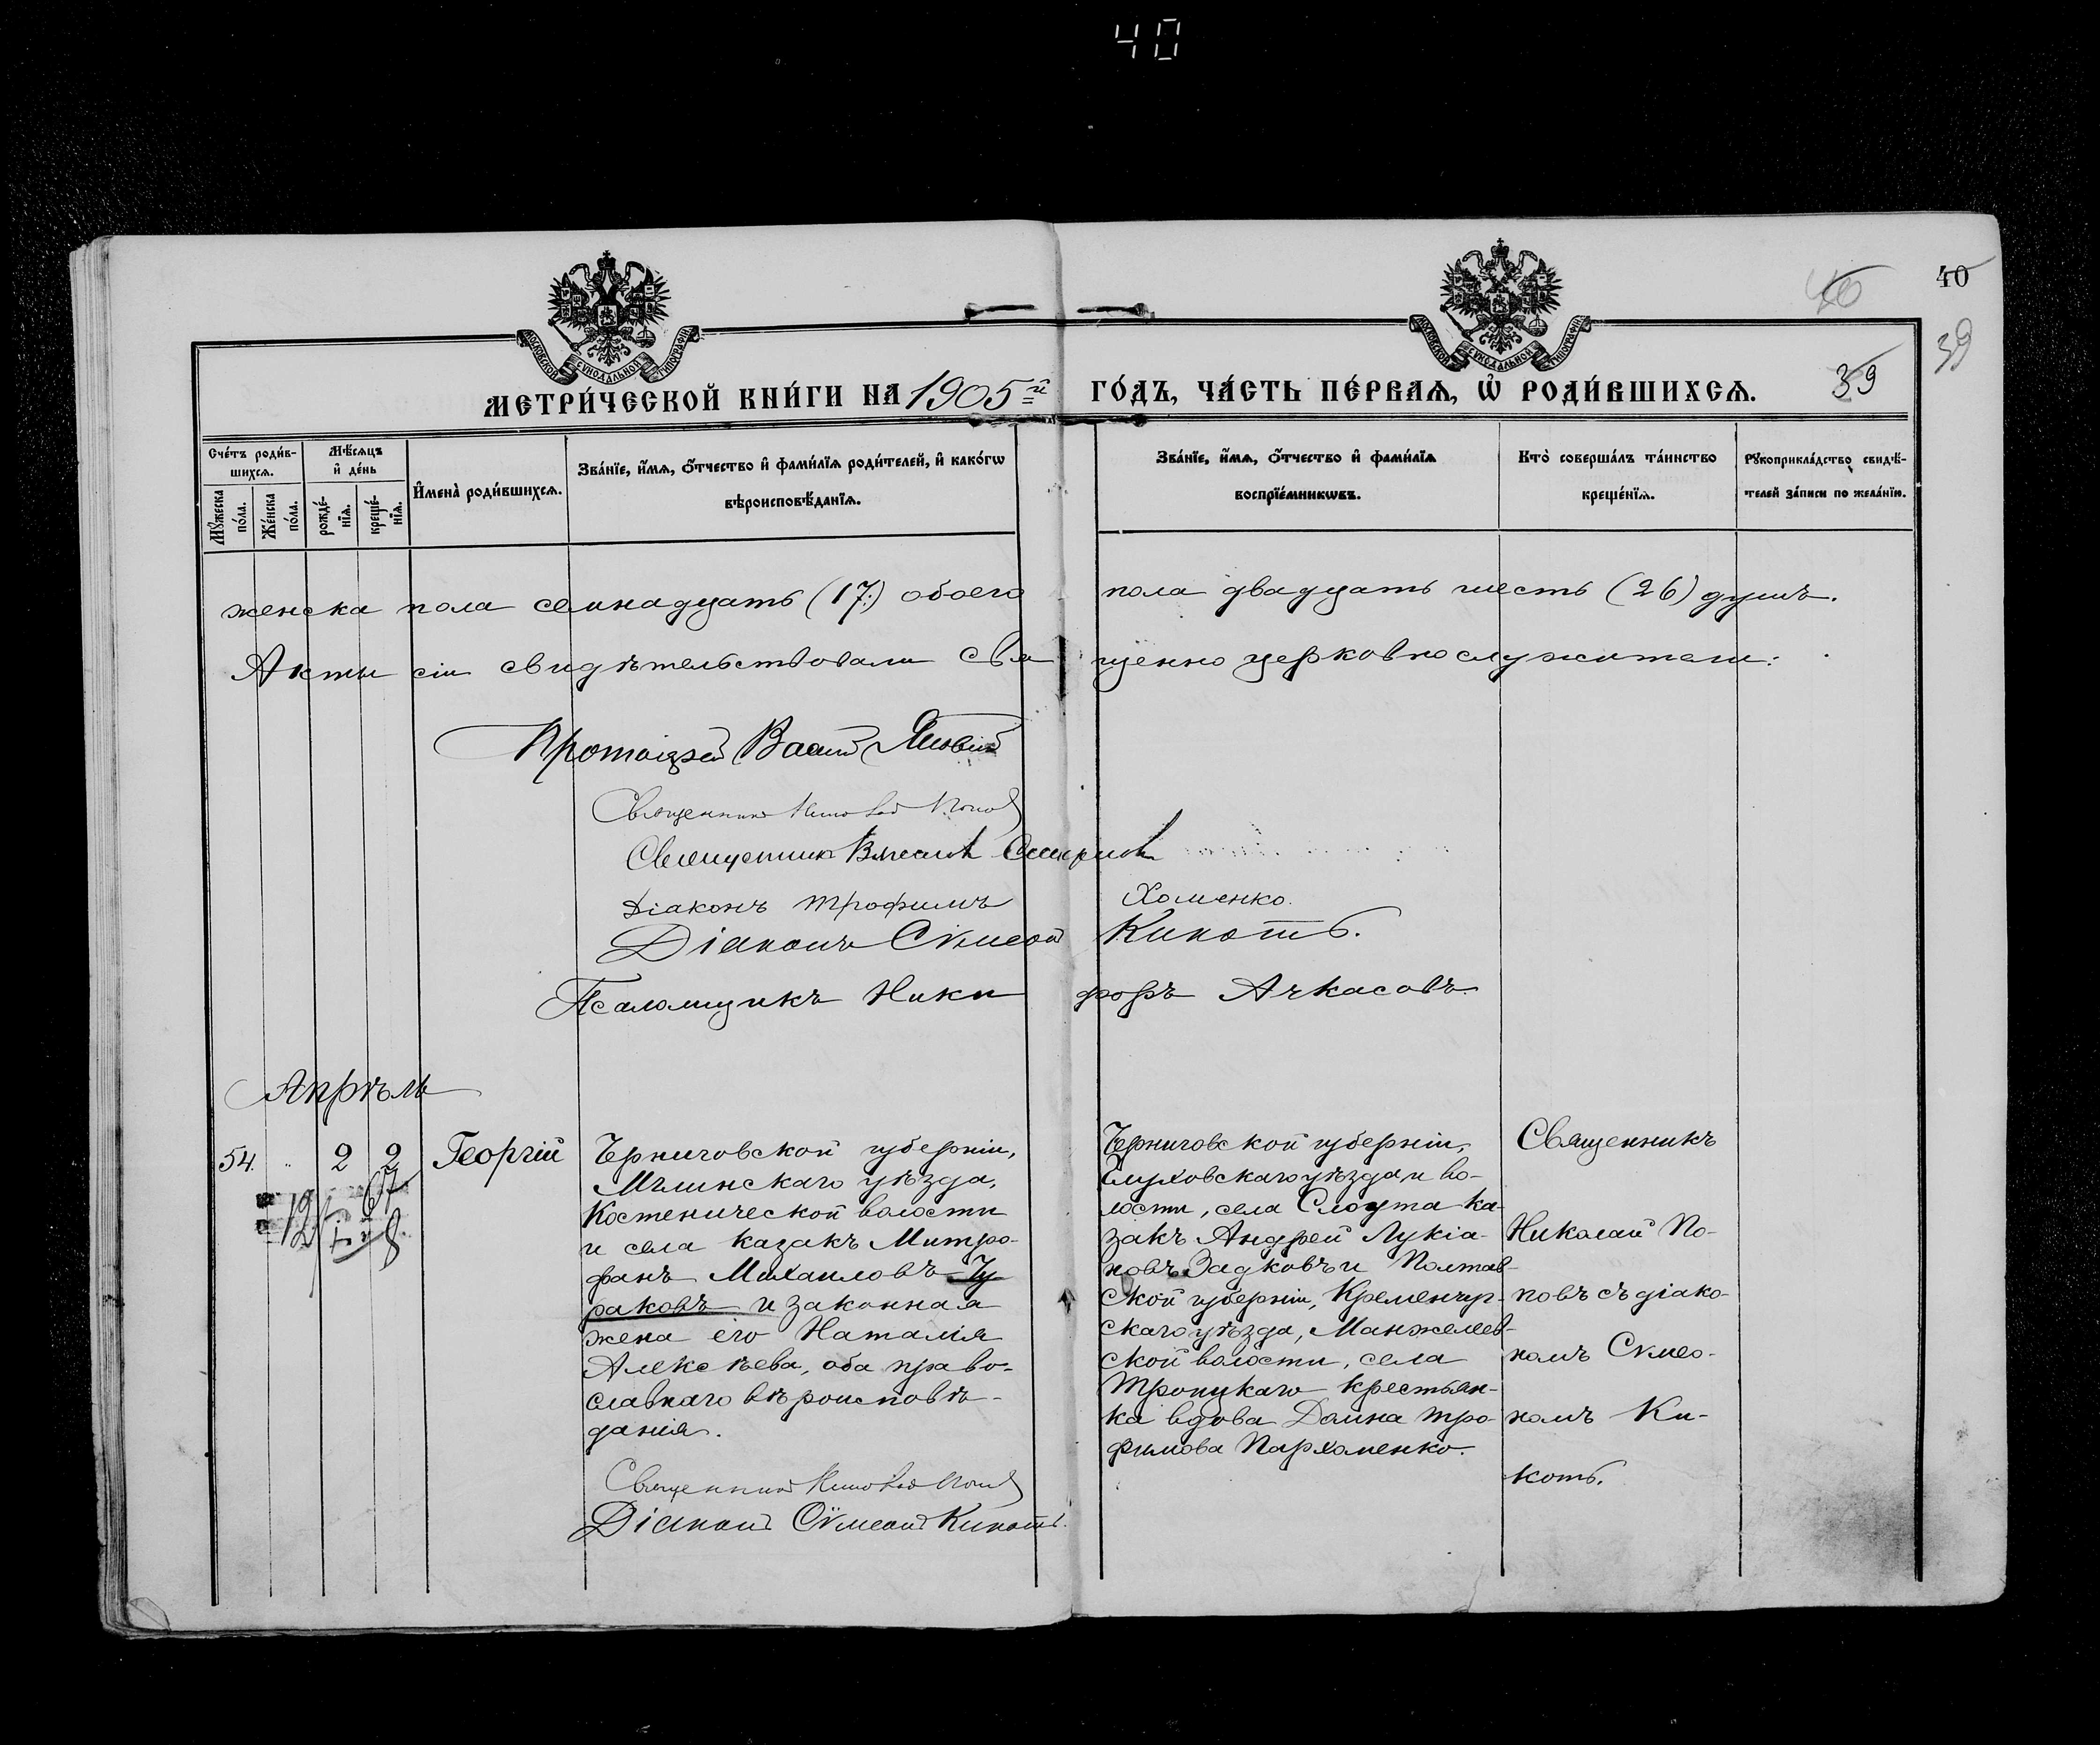 40
40
39
39
МОСКОВСКОЙ СѴНОДАЛЬНОЙ ТИПОГРАФІИ
МОСКОВСКОЙ СѴНОДАЛЬНОЙ ТИПОГРАФІИ
МЕТРИ́ЧЕСКОЙ КНИ́ГИ НА 1905й ГО́ДЪ, ЧА́СТЬ ПЕ́РВАѦ, Ѡ҆ РОДИ́ВШИХСѦ.
Сче́тъ роди́в-
шихсѧ.
Мꙋ́жеска по́ла.
Же́нска по́ла.
Мѣ́сѧцъ
и҆ де́нь
рожде́-
нїѧ.
креще́-
нїѧ.
И҆мена̀ роди́вшихсѧ.
Зва́нїе, и҆́мѧ, ѻ҆́тчество и҆ фами́лїѧ роди́телей, и҆ како́гѡ
вѣроисповѣ́данїѧ.
Зва́нїе, и҆́мѧ, ѻ҆́тчество и҆ фами́лїѧ
воспрїе́мникѡвъ.
Кто̀ соверша́лъ та́инство
креще́нїѧ.
Рꙋкоприкла́дство свидѣ́-
телей за́писи по жела́нїю.
женска пола семнадцать (17:) обоего пола двадцать шесть (26) душъ.
Акты сіи свидѣтельствовали священно церковнослужители:
Протоіерей Васил
Священникъ Николай Попов
Священникъ Смирнов
Діаконъ Трофимъ Хоменко.
Діаконъ Сѵмеон Кикоть.
Псаломщикъ Никифоръ Ачкасовъ.
Апрѣль
54. " 2 2 Георгій
Черниговской губерніи,
Мглинскаго уѣзда,
Костенической волости
и села казакъ Митро-
фанъ Михаиловъ Чу
раковъ и законная
жена его Наталія
Алексѣева, оба право-
славнаго вѣроисповѣ-
данія.
Священникъ Николай Попов
Діакон Сѵмеон Кикоть.
Черниговской губерніи,
Глуховскаго уѣзда и во-
лости, села Слоута ка-
закъ Андрей Лукіа-
новъ Задковъ и Полтав-
ской губерніи, Кременчуг-
скаго уѣзда, Манжелеев-
ской волости, села
Троицкаго крестьян-
ка вдова Домна Тро-
фимова Пархоменко.
Священникъ
Николай По-
повъ съ діако-
номъ Сѵмео-
номъ Ки-
коть.